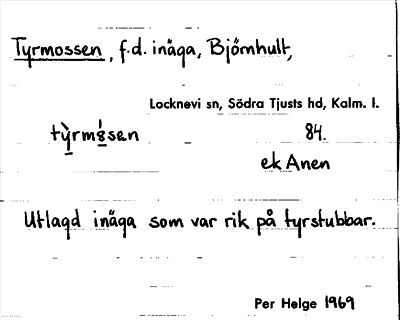 Tyrmossen, f.d. inäga, Björnhult,
Locknevi sn, Södra Tjusts hd, Kalm. l.
84.
ek Anen
Utlagd inäga som var rik på tyrstubbar.
Per Helge 1969